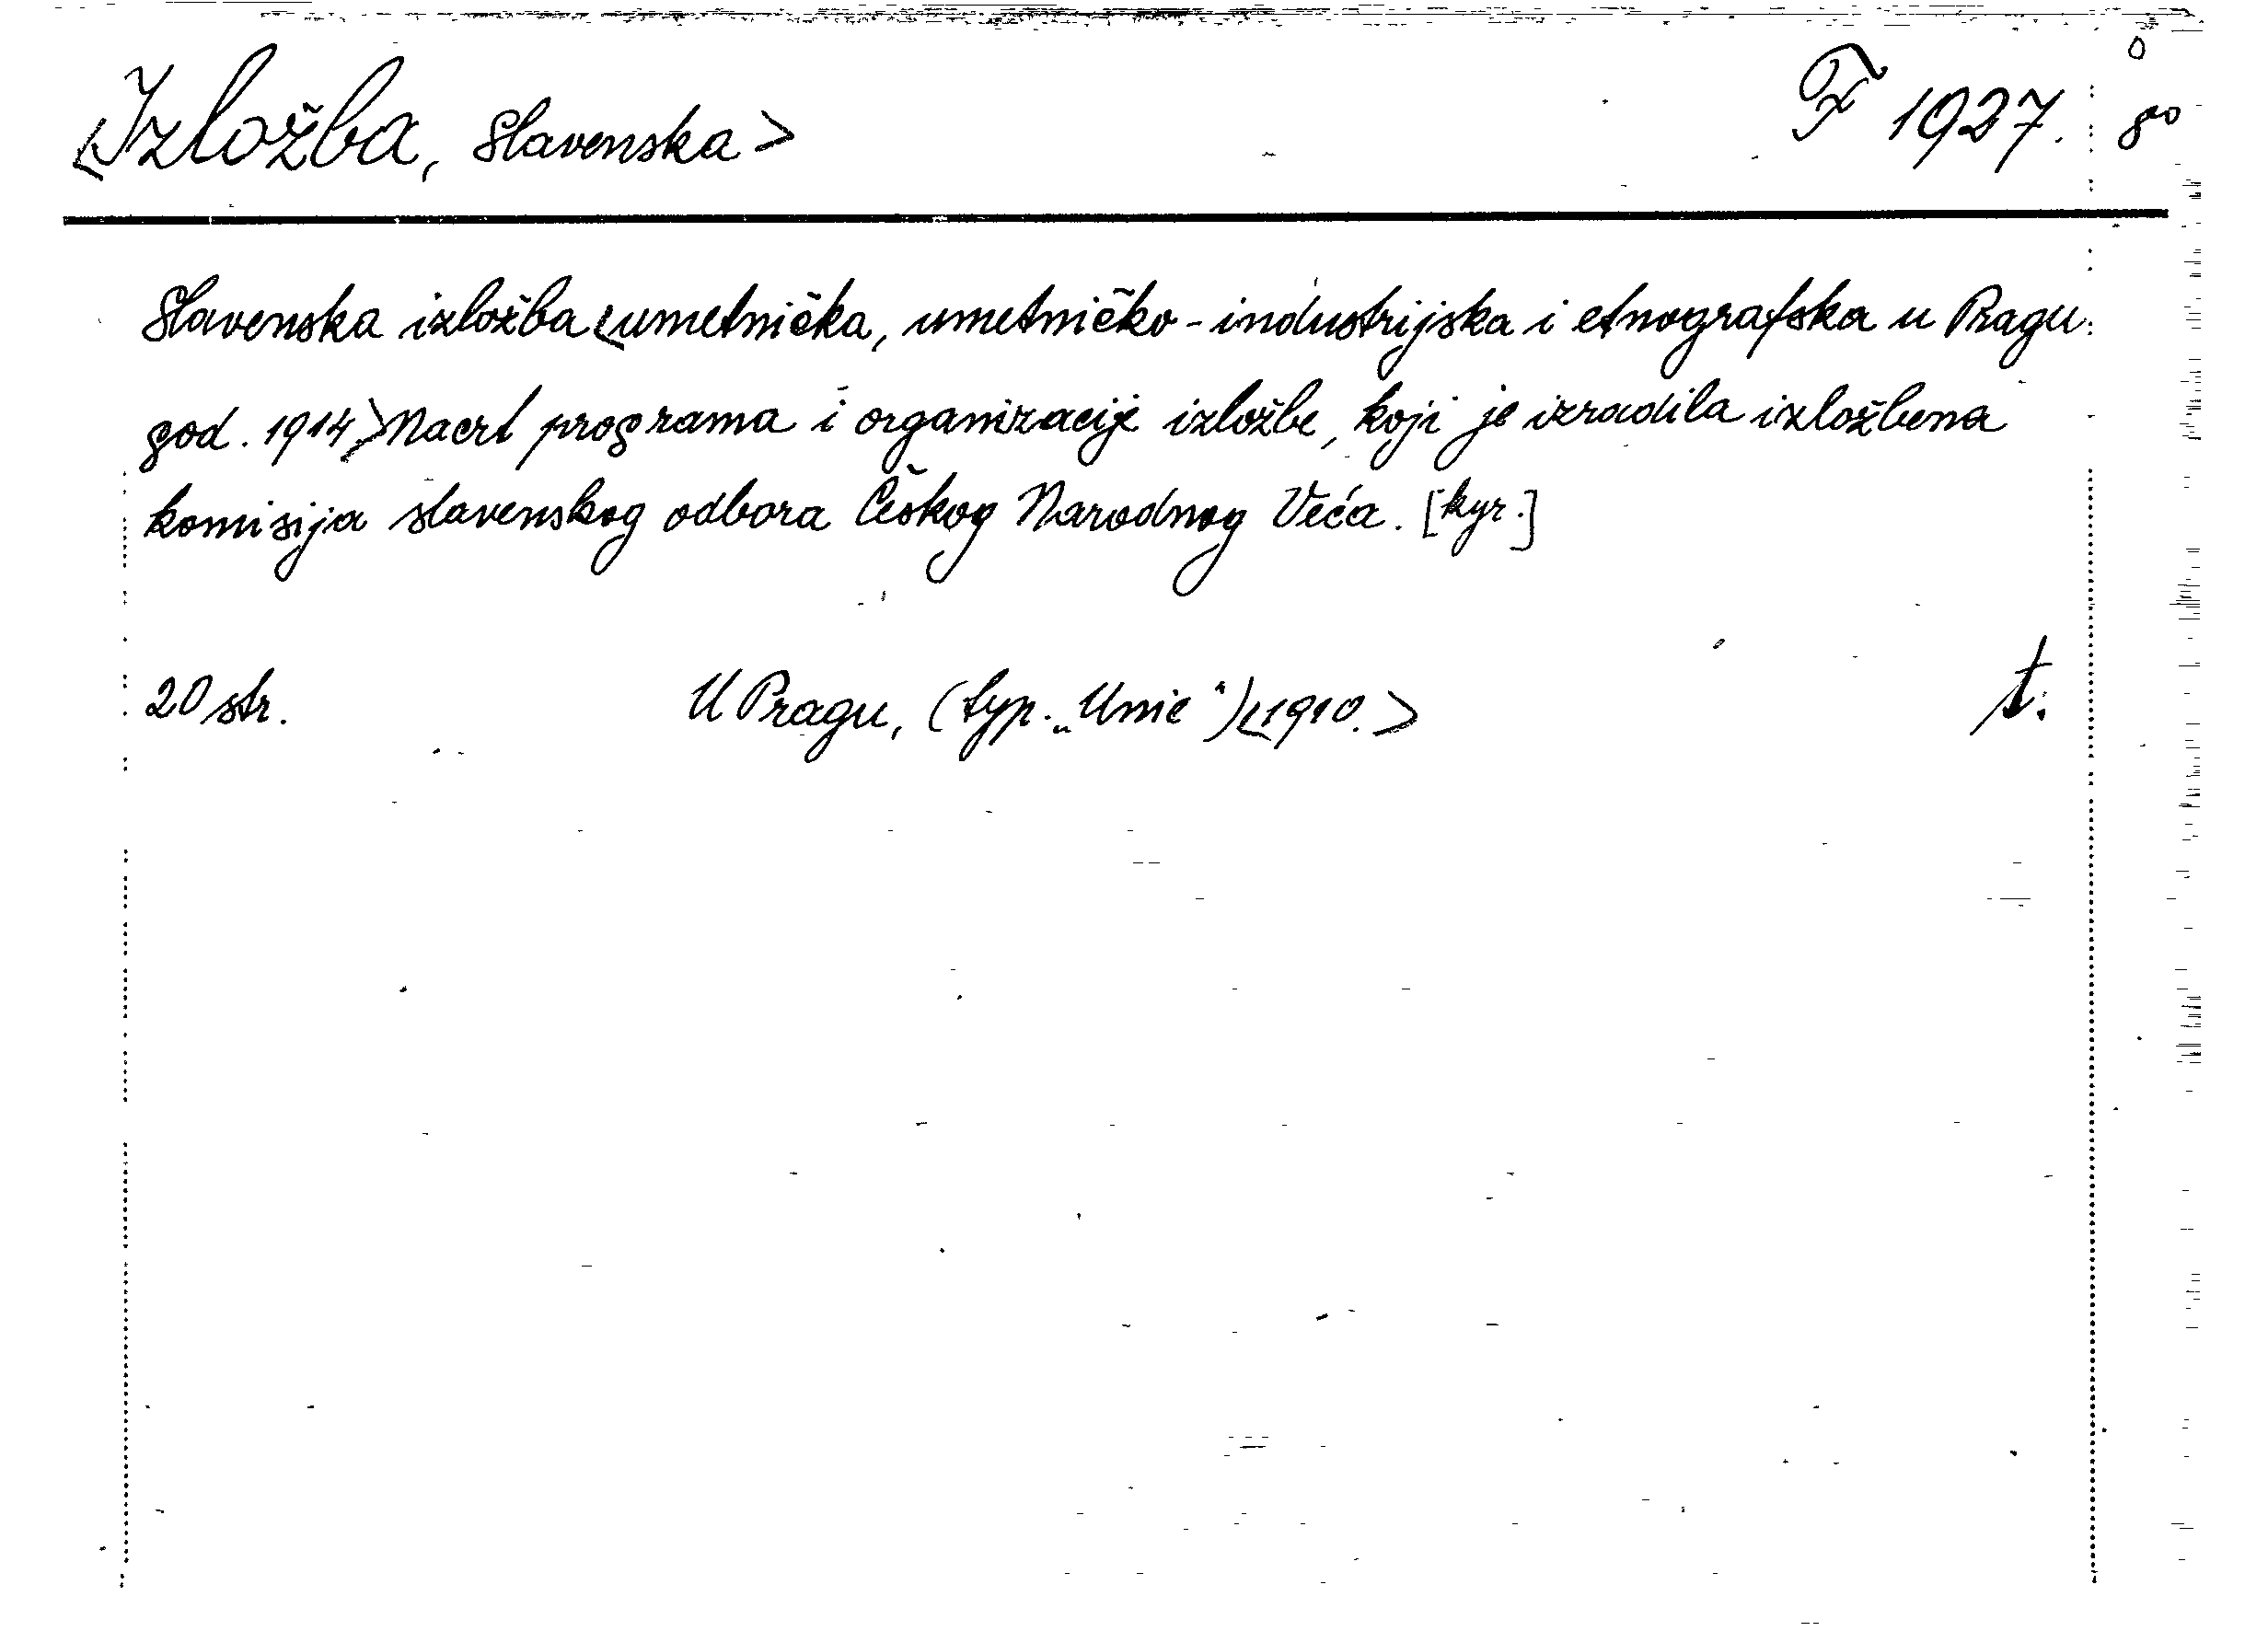 <Izložba, Slavenska> F 1927. 8°
Slavenska izložba <umetnička, umetničko-industrijska i etnografska u Pragu
god. 1914> Nacrt programa i organizacije izložbe, koji je izradila izložbena
komisija slavenskog odbora Češkog Narodnog Veća. [kyr.]
20 str. U Pragu, (typ. „Unie“) <1910.> t.